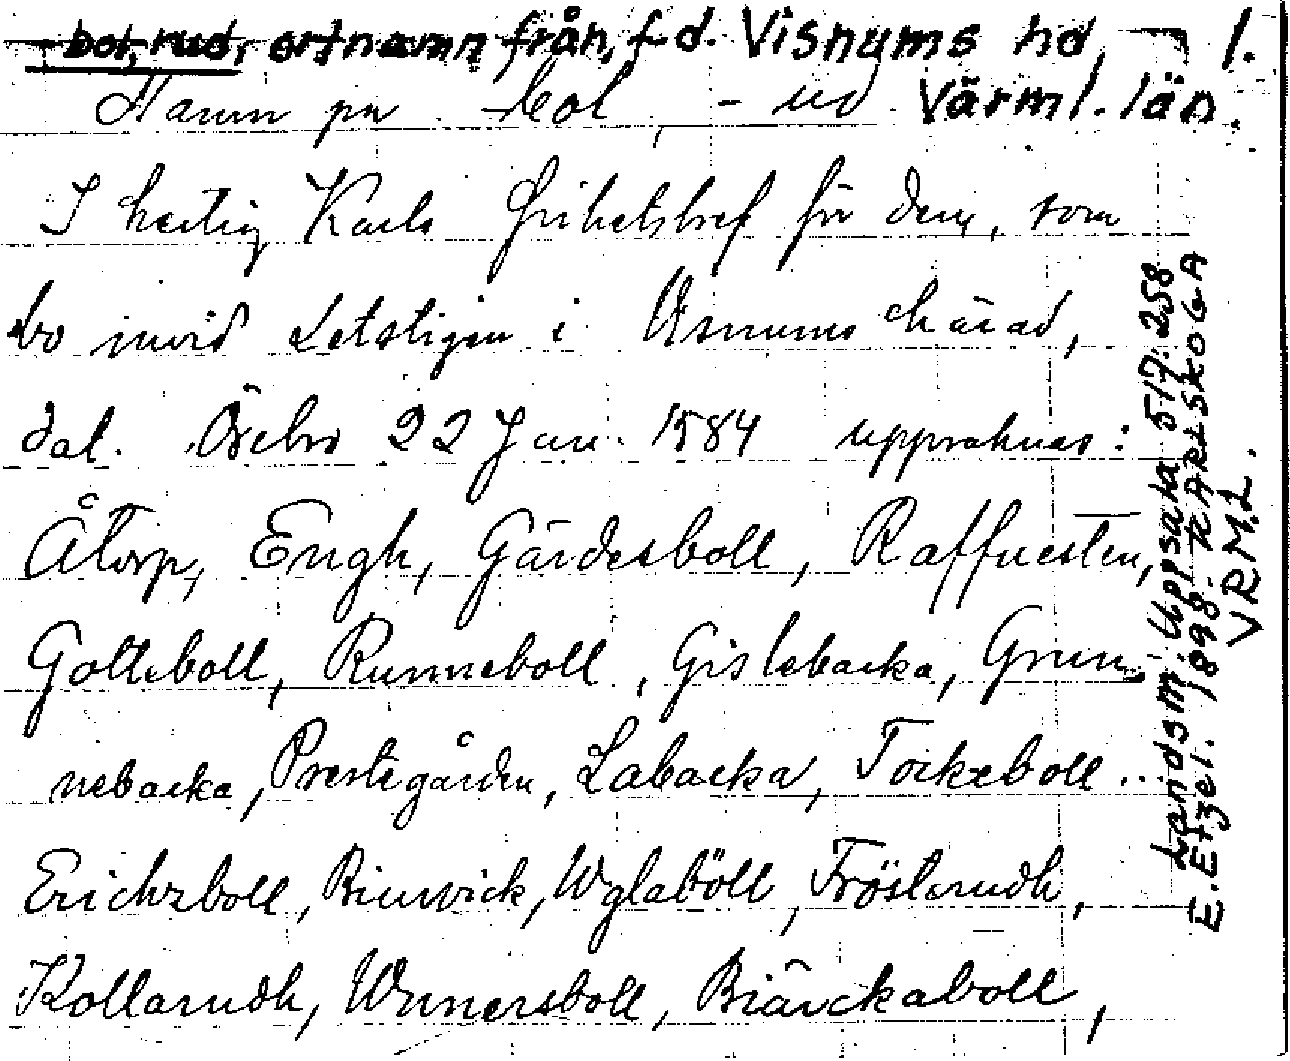 -bol, rud, ortnamn från f.d. Visnums hd, 1.
Namn på -bol, -ud Värml. län.
I hertig Karls frihetsbref för dem, som
bo invid Letstigen i Visnums härad,
dat. Örebro 22 Jan. 1584 uppräknas:
Åtorp, Engh, Gärdesboll, Raffnesten,
Gotteboll, Runneboll, Gislebacka, Grun-
nebacka, Prestegården, Labacka, Tockeboll...
Erichzboll, Biurvick, Wglaböll, Frösterudh,
Kollarudh, Wnnersboll, Biärckaboll,
Landsm. Uppsala 517:258
E. Etzel. 1898. KARLSKOGA
VRML.